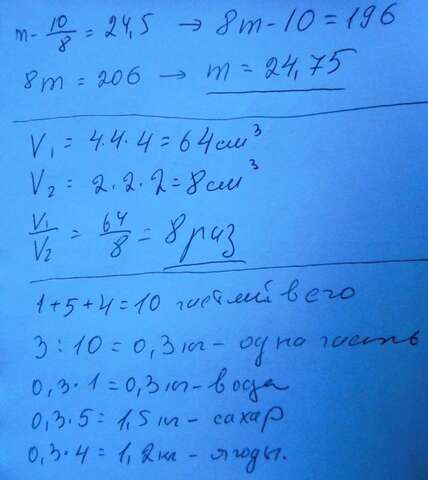 m - 10/8 = 24,5 → 8m - 10 = 196
8m = 206 → m = 24,75
V₁ = 4·4·4 = 64 см³
V₂ = 2·2·2 = 8 см³
V₁/V₂ = 64/8 = 8 раз
1+5+4 = 10 частей всего
3 : 10 = 0,3 кг - одна часть
0,3·1 = 0,3 кг - вода
0,3·5 = 1,5 кг - сахар
0,3·4 = 1,2 кг - ягоды.